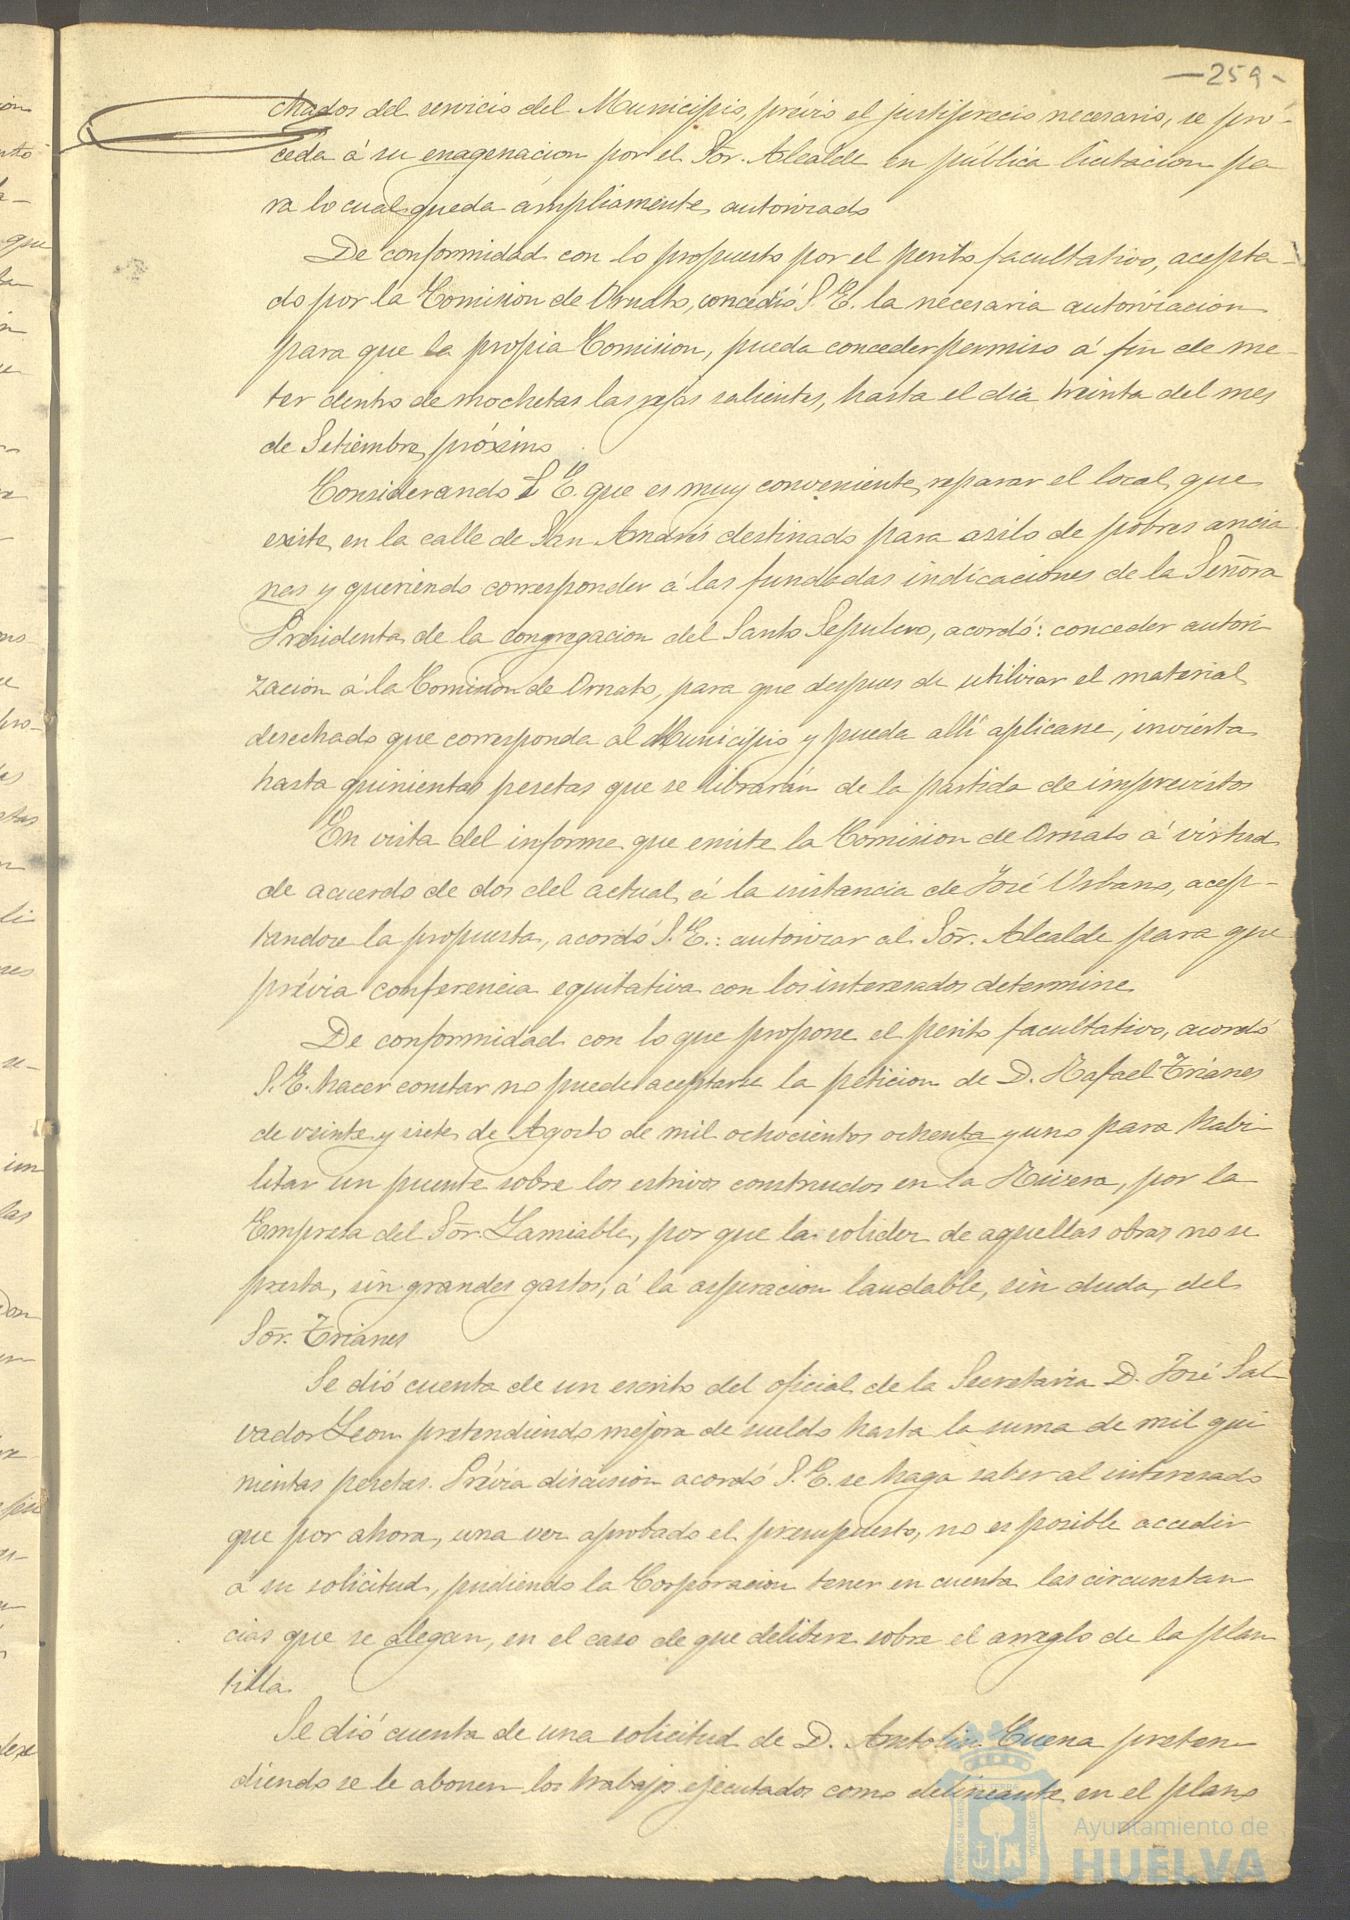 -259-
chados del servicio del Municipio, prévio el justiprecio necesario, se pro-
ceda á su enagenacion por el Sōr. Alcalde en pública licitacion pa
ra lo cual queda ámpliamente autorizado
De conformidad con lo propuesto por el perito facultativo, acepta-
do por la Comision de Ornato, concedió S. E. la necesaria autorizacion
para que la propia Comision, pueda conceder permiso á fin de me-
ter dentro de mochetas las rejas salientes, hasta el dia treinta del mes
de Setiembre próximo
Considerando S. E. que es muy conveniente reparar el local que
existe en la calle de San Andrés destinado para asilo de pobres ancia
nas y queriendo corresponder á las fundadas indicaciones de la Señora
Presidenta de la congregacion del Santo Sepulcro, acordó: conceder autori
zacion á la Comision de Ornato, para que despues de utilizar el material
desechado que corresponda al Municipio y pueda allí aplicarse, invierta
hasta quinientas pesetas que se librarán de la partida de imprevistos
En vista del informe que emite la Comision de Ornato á virtud
de acuerdo de dos del actual á la instancia de José Urbano, acep-
tandose la propuesta, acordó S. E.: autorizar al Sōr. Alcalde para que
prévia conferencia equitativa con los interesados determine
De conformidad con lo que propone el perito facultativo, acordó
S. E. hacer constar no puede aceptarse la peticion de D. Rafael Trianes
de veinte y siete de Agosto de mil ochocientos ochenta y uno para habi-
litar un puente sobre los estrivos construidos en la Rivera, por la
Empresa del Sōr. Lamiable, por que la solidez de aquellas obras no se
presta, sin grandes gastos, á la aspiracion laudable, sin duda, del
Sōr. Trianes
Se dió cuenta de un escrito del oficial de la Secretaria D. José Sal
vador Leon pretendiendo mejora de sueldo hasta la suma de mil qui
nientas pesetas. Prévia discusion acordó S. E. se haga saber al interesado
que por ahora, una vez aprobado el presupuesto, no es posible acceder
á su solicitud, pudiendo la Corporacion tener en cuenta las circunstan
cias que se alegan, en el caso de que delibere sobre el arreglo de la plan
tilla.
Se dió cuenta de una solicitud de D. Antolin Cuena preten
diendo se le abonen los trabajos ejecutados como delineante en el plano
Ayuntamiento de
HUELVA